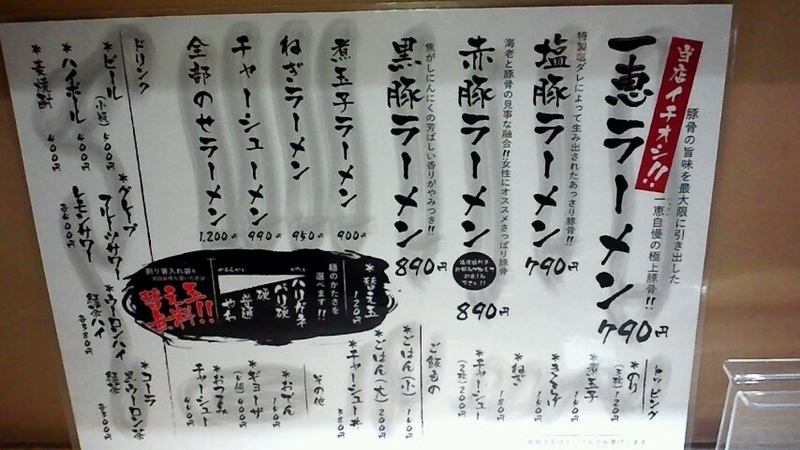 豚骨の旨味を最大限に引き出した
一恵自慢の極上豚骨!!
当店イチオシ!!
一恵ラーメン
790円
特製塩ダレによって生み出されたあっさり豚骨!!
塩豚ラーメン
790円
海老と豚骨の見事な融合!!女性にオススメさっぱり豚骨
赤豚ラーメン
890円
焦がしにんにくの芳ばしい香りがやみつき!!
黒豚ラーメン
890円
煮玉子ラーメン
900円
ねぎラーメン
950円
チャーシューメン
990円
全部のせラーメン
1,200円
*替え玉
120円
麺のかたさを
選べます!!
ハリガネ
バリ硬
硬
普通
やわ
割り箸入れ袋を
替え玉
無料!!
トッピング
*のり
(5枚) 120円
*煮玉子
*きくらげ
*ねぎ
*チャーシュー
(2枚) 200円
ご飯もの
*ごはん(小)
*ごはん(大)
200円
*チャーシュー丼
その他
*おでん
*ギョーザ
*おつまみ
チャーシュー
ドリンク
*ビール
(小瓶) 500円
*ハイボール
400円
*麦焼酎
400円
*グレープ
フルーツサワー
レモンサワー
*ウーロンハイ
緑茶ハイ
*コーラ
黒ウーロン茶
緑茶